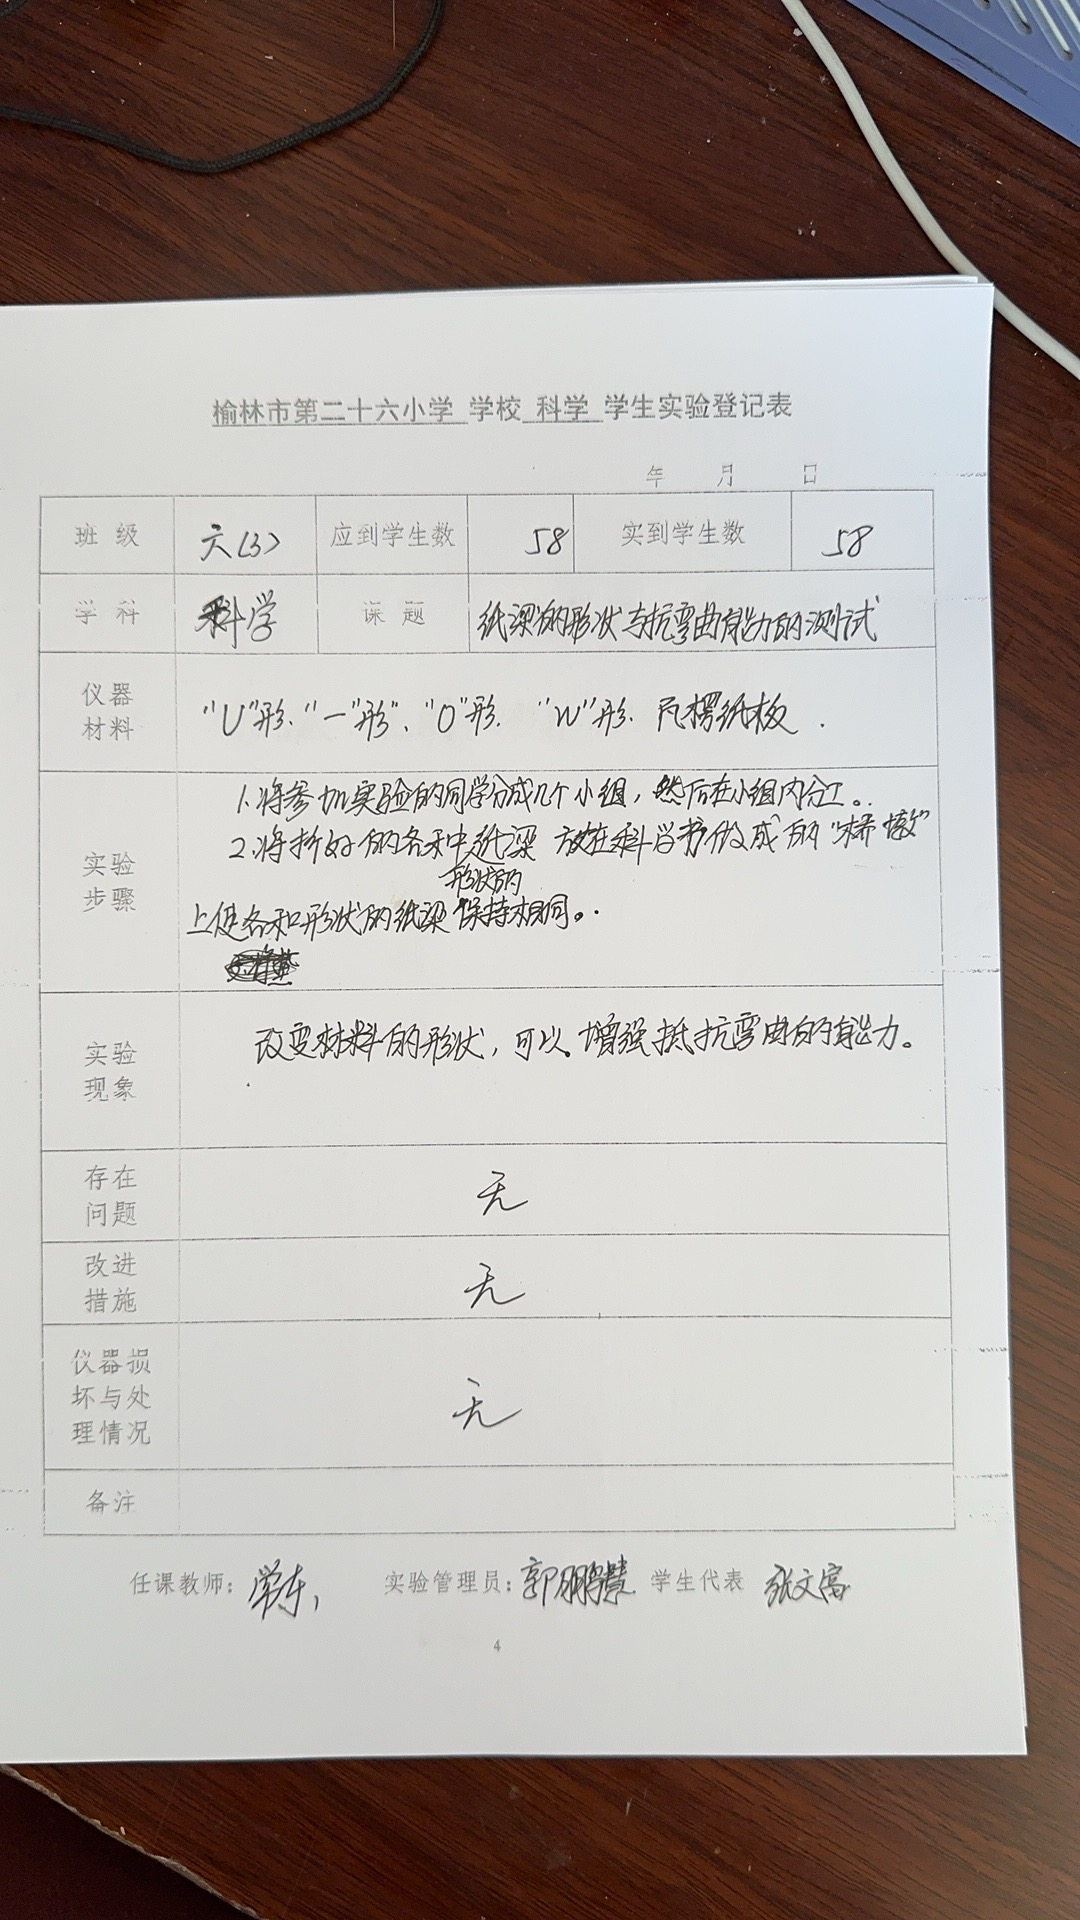 榆林市第二十六小学 学校 科学 学生实验登记表
年 月 日
班级 六(3) 应到学生数 58 实到学生数 58
学科 科学 课题 纸梁的形状与抗弯曲能力的测试
仪器
材料
"U"形、"一"形"、"O"形. "W"形. 瓦楞纸板.
实验
步骤
1.将参加实验的同学分成几个小组，然后在小组内分工。
2.将折好的各种纸梁 放在科学书做成的"桥墩"
形状的
上使各种形状的纸梁保持相同。
实验
现象
改变材料的形状，可以增强抵抗弯曲的能力。
存在
问题
无
改进
措施
无
仪器损
坏与处
理情况
无
备注
任课教师： 实验管理员： 郭鹏慧 学生代表 张文富
4